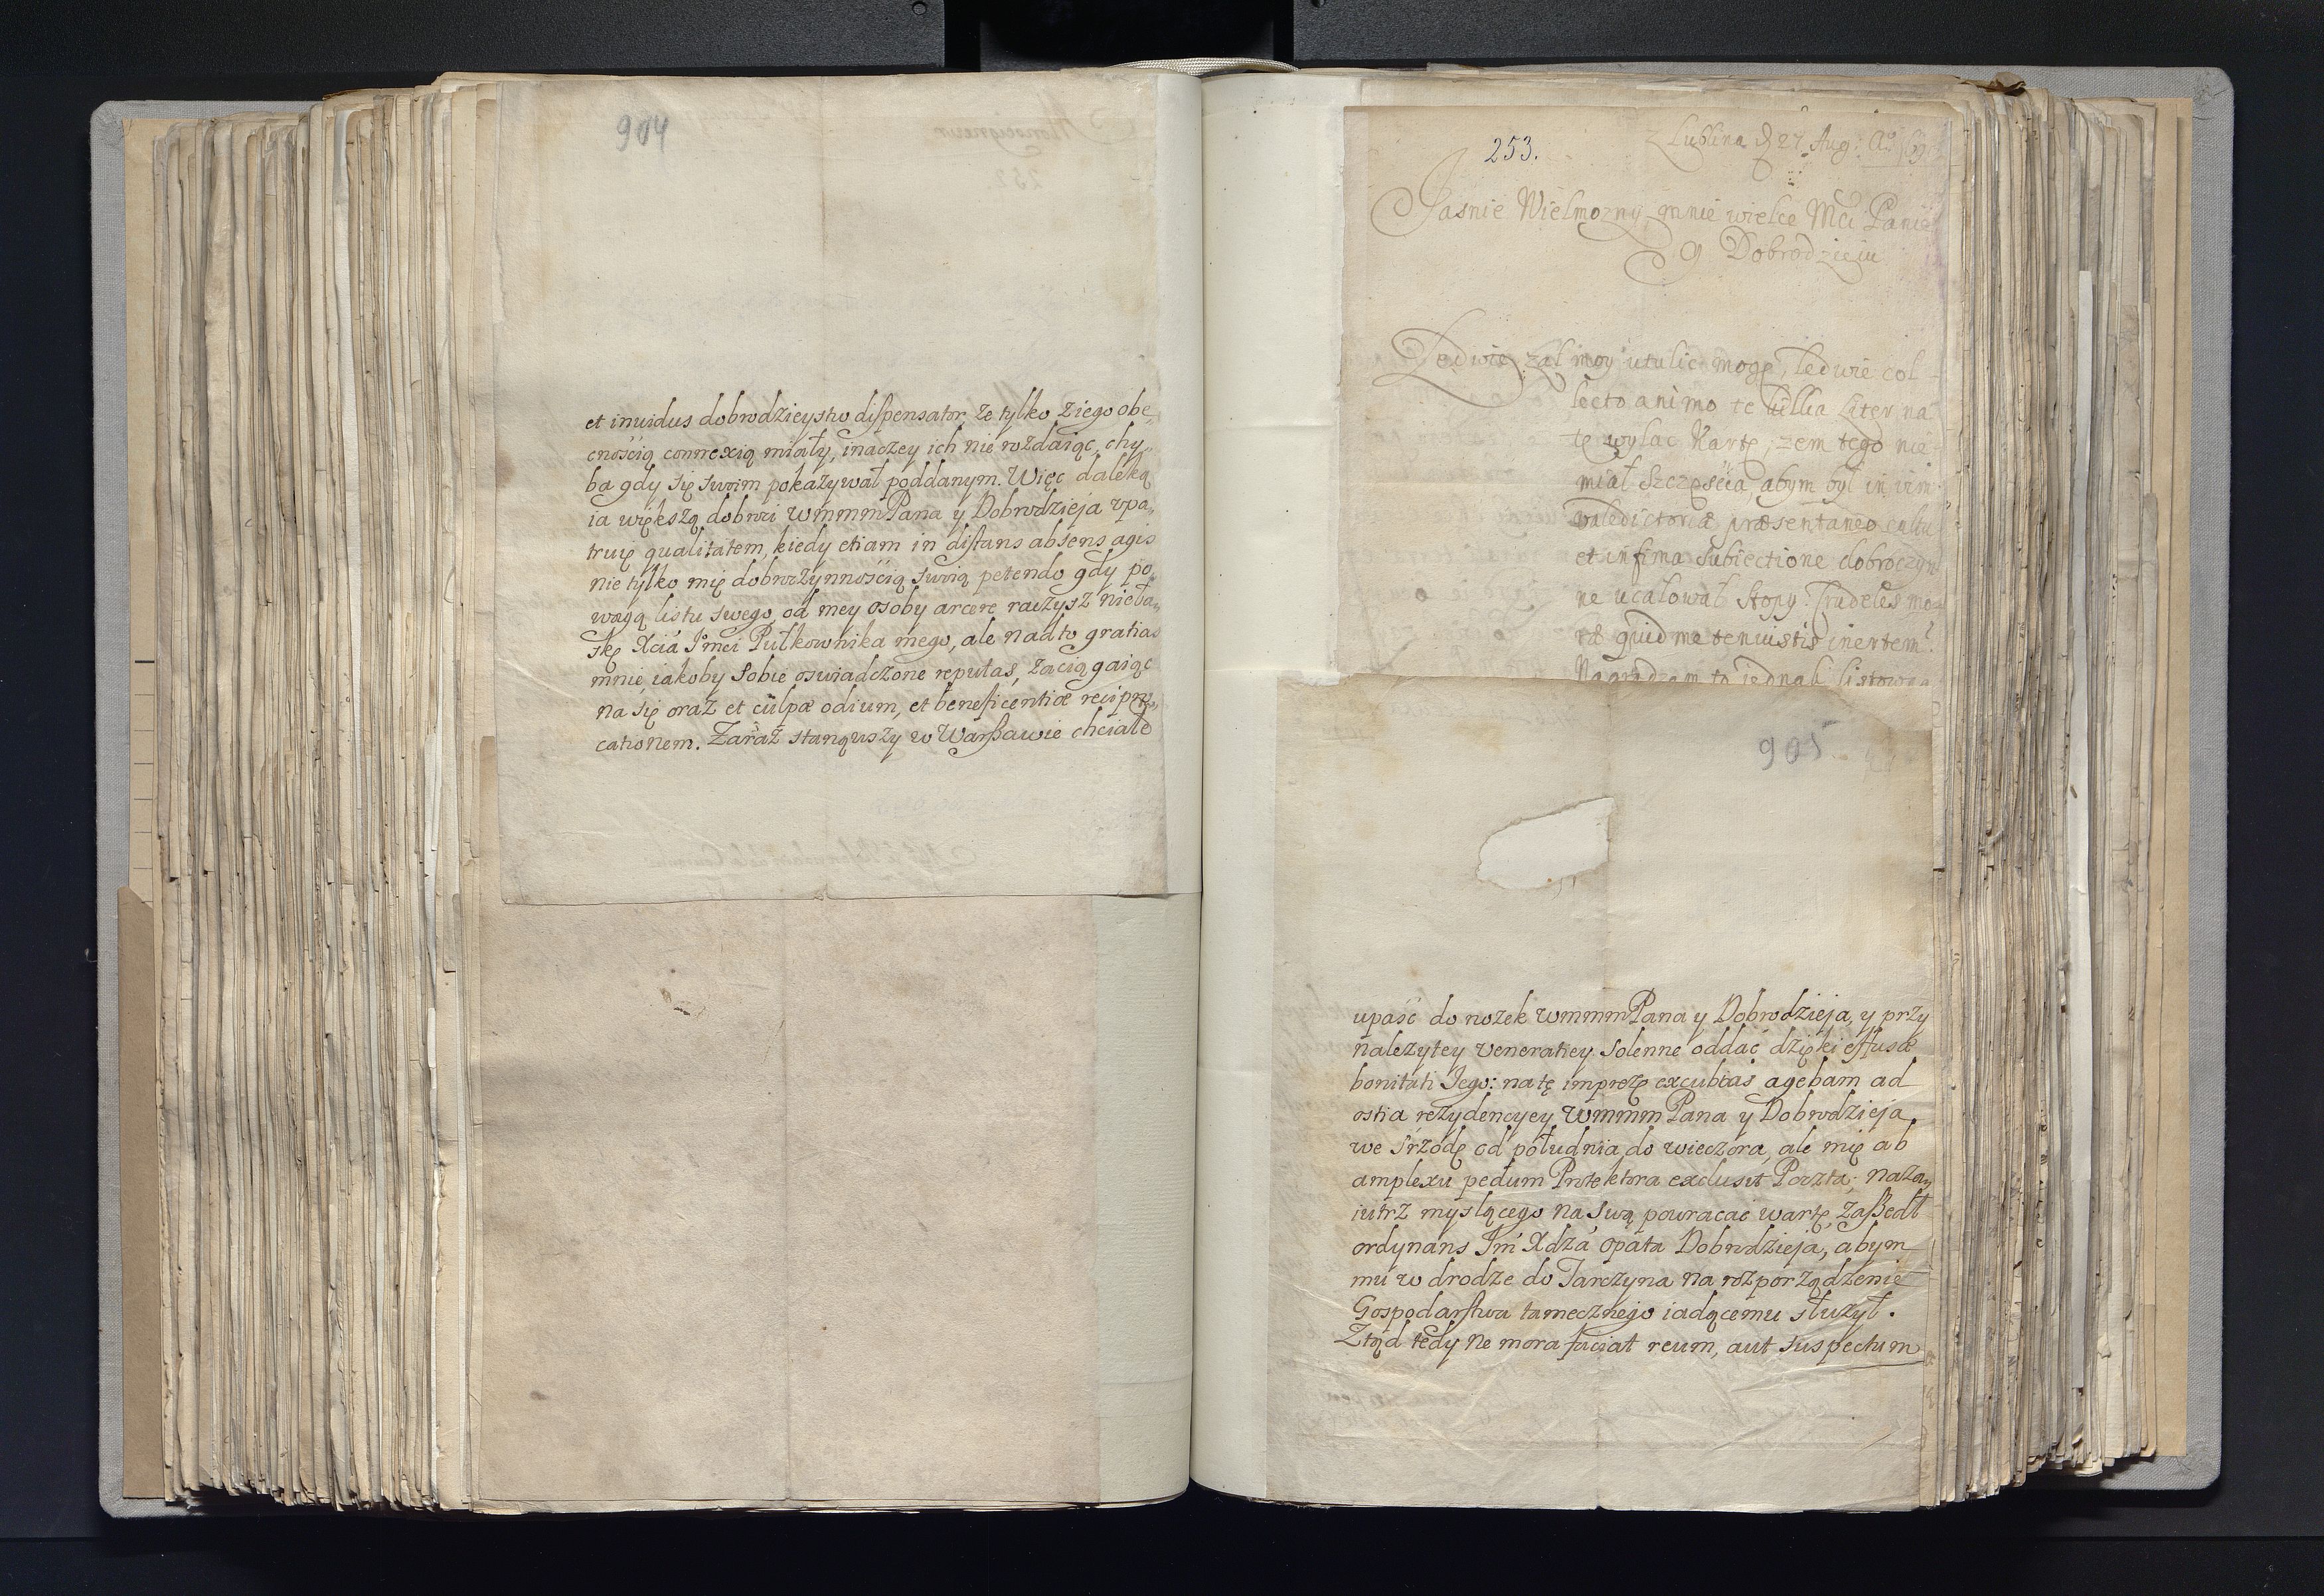 904
et inuidus dobrodzieystw dispensator ze tylko z iego obe„
cnością connexią miały, inaczey ich nie rozdaiąc, chy„
ba gdy się swoim pokazywał poddanym. Więc daleką
ia większą dobroci wmmmPana y Dobrodzieja vpa„
truię qualitatem, kiedy etiam in distans absens agis
nie tylko mię dobroczynnością swoią petendo gdy po„
wagą listu swego, od mey osoby arcere raczysz nieła„
skę Xcia Jmci Pułkownika mego, ale nadto gratias
mnie iakoby Sobie oswiadczone reputas, zaciągaiąc
na się oraz et culpæ odium, et beneficentiæ recipro„
cationem. Zaraz stanąwszy w Warszawie chciałe
253.
z Lublina d 27 Aug: Aº
Jasnie Wielmozny mnie wielce Mci Panie
y Dobrodzieiu
Ledwie zal moy utulic mogę, ledwie col-
lecto animo te
tę wylac Kartę, zem tego nie
miał szczęscia, abym był in
valedictoria præsentaneo cultu
et infima subiectione dobroczyn
ne ucałował stopy. Crudeles mo
ræ quid me tenuistis inertem?
Nagradzam to iednak listowną
905
upaść do nozek wmmmPana y Dobrodzieja, y przy
nalezytey veneratiey solenne oddać dzięki effusæ
bonitati Jego: na tę imprezę excubias agebam ad
ostia rezydencyey wmmm Pana y Dobrodzieja
we srzodę od południa do wieczora, ale mię ab
amplexu pedum Protektora exclusit Poczta; naza„
iutrz myslącego na swą powracac wartę, zaszedł
ordynans Jm Xdza Opata Dobrodzieja, abym
mu w drodze do Tarczyna na rozporządzenie
Gospodarstwa tamecznego iadącemu słuzył.
Ztąd tedy ne mora faciat reum, aut suspectum